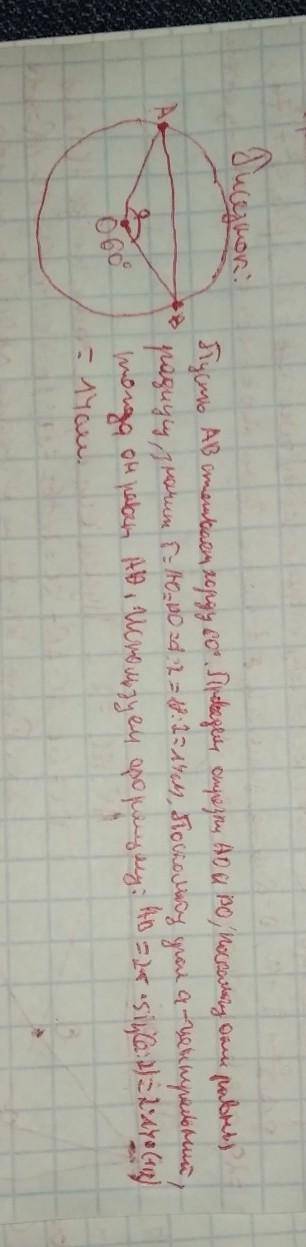 Рисунок:
A
B
α
O 60°
Пусть AB стягивает хорду 60°. Проведем отрезки AO и BO, поскольку они равны
радиусу, значит r = AO = BO = d : 2 = : 2 = 14 см. Поскольку угол α - центральный,
тогда он равен AB. Используем формулу: AB = 2r · sin(α : 2) = 2 · 14 · (1/2)
= 14 см.